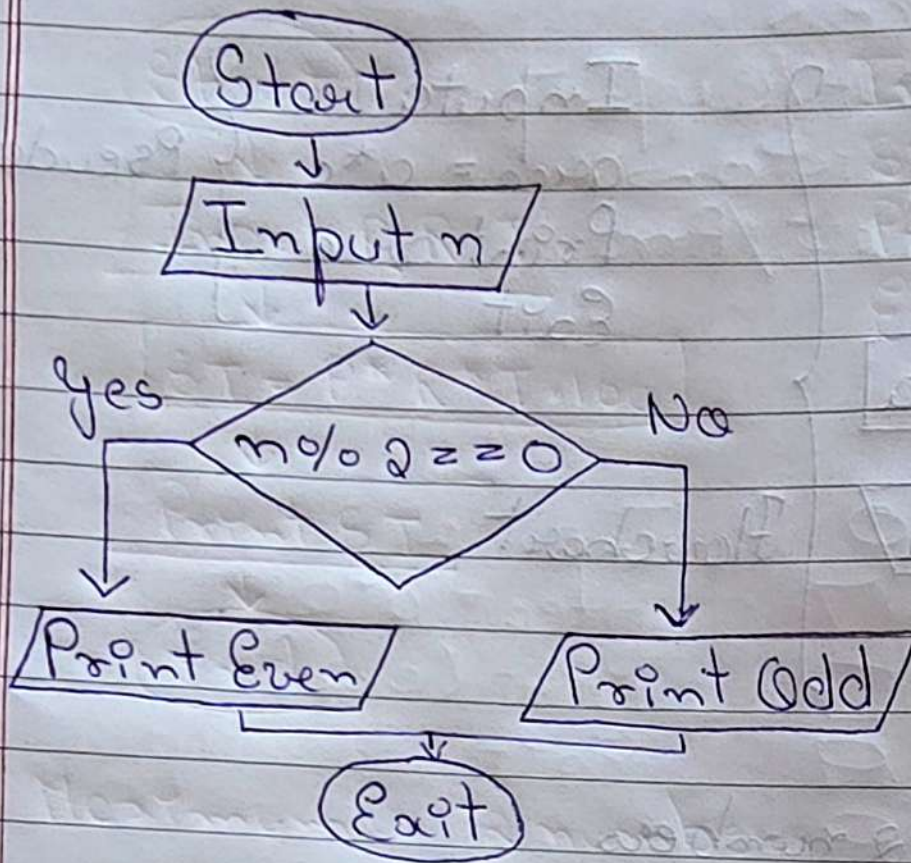 Start
Input n
Yes
No
n%2==0
Print Even
Print Odd
Exit